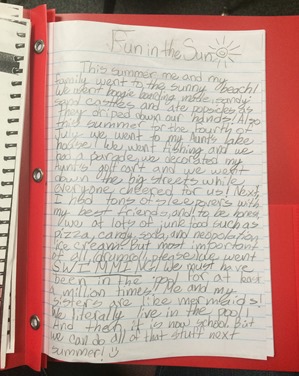 Fun in the Sun
This summer, me and my
family went to the sunny beach!
We went boogie boarding, made sandy
sand castles and ate popsicles as
they driped down our hands. Also
this summer for the fourth of
July we went to my Aunts lake
house! We went fishing and
had a parade, we decorated my
Aunts golf cart and we went
down the big streets while
everyone cheered for us! Next,
I had tons of sleepovers with
my best friends, and to be honest,
we at lots of junk food such as
pizza, candy, soda, and neopolitian
ice cream. But most important
of all, drumroll please, we went
SWIMMING! We must have
been in the pool for at least
a million times! Me and my
sisters are like mermaids!
We literally live in the pool!
And then it is now school but
we can do all of that stuff next
summer! :)